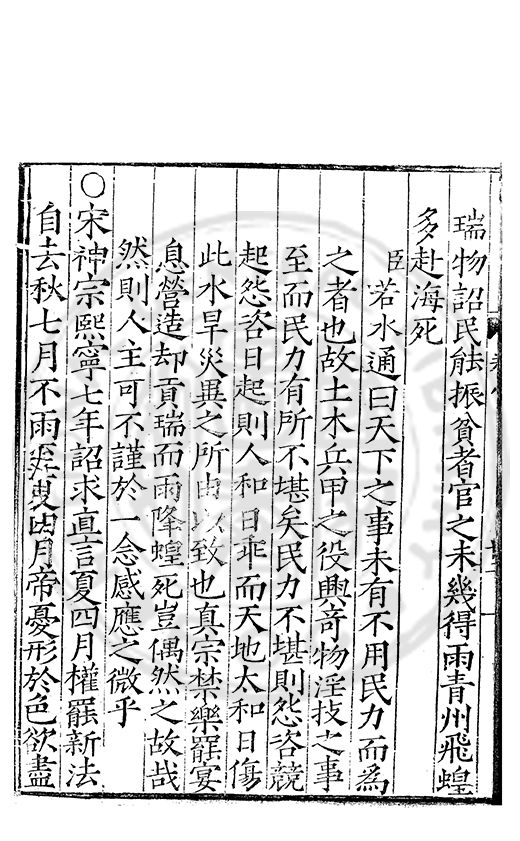 瑞物詔民能振貧者官之未幾得雨青州飛蝗
多赴海死
臣若水通曰天下之事未有不用民力而為
之者也故土木兵甲之役興奇物淫技之事
至而民力有所不堪矣民力不堪則怨咨競
起怨咨日起則人和日乖而天地太和日傷
此水旱災異之所由以致也真宗禁樂罷宴
息營造却貢瑞而雨降蝗死豈偶然之故哉
然則人主可不謹於一念感應之微乎
○宋神宗熙寧七年詔求直言夏四月權罷新法
自去秋七月不雨至夏四月帝憂形於色欲盡